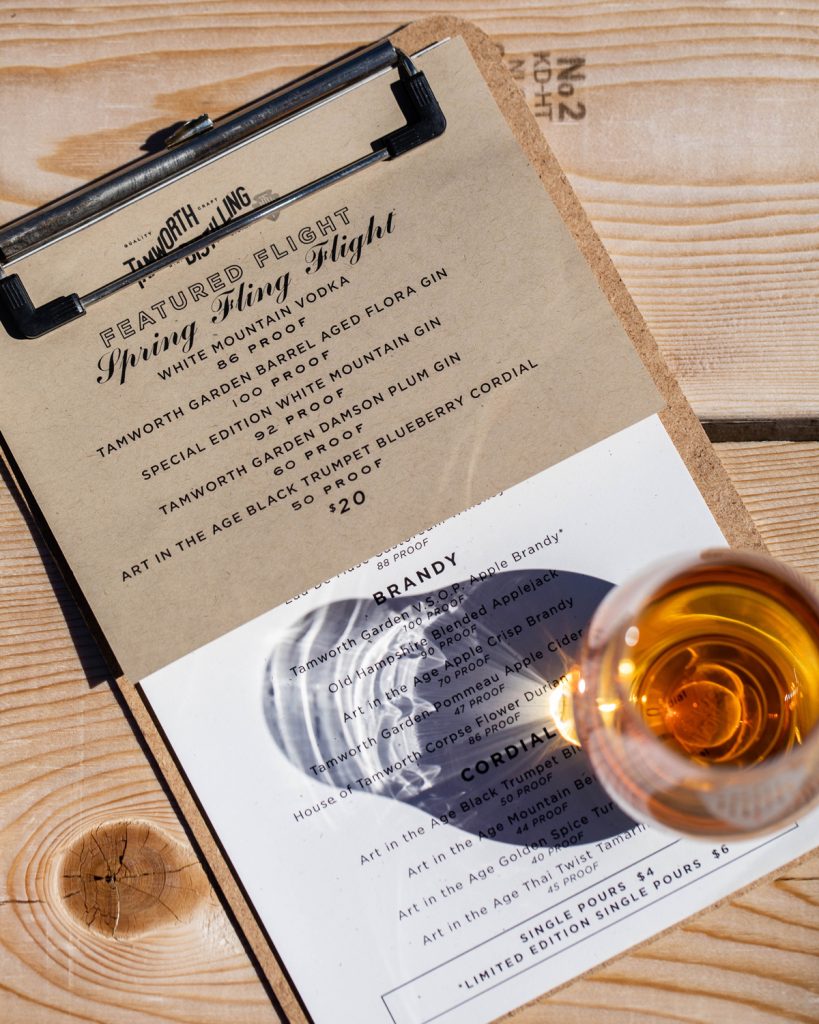 No2
KD-HT
QUALITY CRAFT
TAMWORTH
FEATURED FLIGHT
Spring Fling Flight
WHITE MOUNTAIN VODKA
86 PROOF
TAMWORTH GARDEN BARREL AGED FLORA GIN
100 PROOF
SPECIAL EDITION WHITE MOUNTAIN GIN
92 PROOF
TAMWORTH GARDEN DAMSON PLUM GIN
60 PROOF
ART IN THE AGE BLACK TRUMPET BLUEBERRY CORDIAL
50 PROOF
$20
88 PROOF
BRANDY
Tamworth Garden V.S.O.P. Apple Brandy*
100 PROOF
Old Hampshire Blended Applejack
90 PROOF
Art in the Age Apple Crisp Brandy
70 PROOF
Tamworth Garden Pommeau Apple Cider
47 PROOF
House of Tamworth Corpse Flower Durian
86 PROOF
CORDIAL
Art in the Age Black Trumpet Bl
50 PROOF
Art in the Age Mountain Be
44 PROOF
Art in the Age Golden Spice Tur
40 PROOF
Art in the Age Thai Twist Tamarin
45 PROOF
SINGLE POURS $4
*LIMITED EDITION SINGLE POURS $6